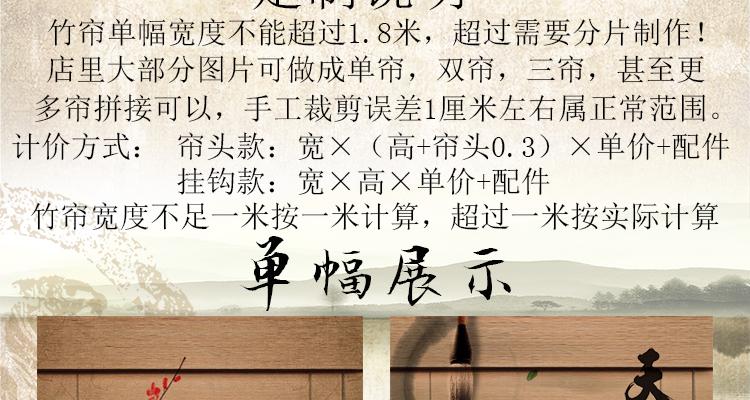 定制说明
竹帘单幅宽度不能超过1.8米，超过需要分片制作！
店里大部分图片可做成单帘，双帘，三帘，甚至更
多帘拼接可以，手工裁剪误差1厘米左右属正常范围。
计价方式： 帘头款：宽×（高+帘头0.3）×单价+配件
挂钩款：宽×高×单价+配件
竹帘宽度不足一米按一米计算，超过一米按实际计算
单幅展示
天